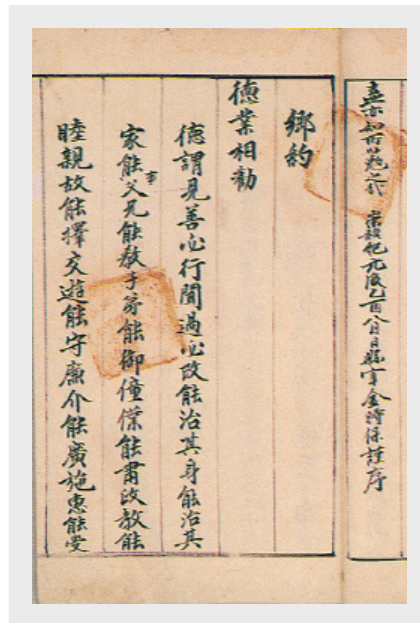 亦知所以勉之哉 崇禎紀元後乙酉八月日縣宰金時保謹序
鄕約
德業相勸
德謂見善必行聞過必改能治其身能治其
家能事父兄能敎子弟能御僮僕能肅政敎能
睦親故能擇交遊能守廉介能廣施惠能受